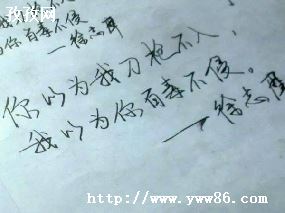 孜孜网
为你百毒不侵
一徐志摩
你以为我刀枪不入，
我以为你百毒不侵。
一徐志摩
http://www.yww86.com